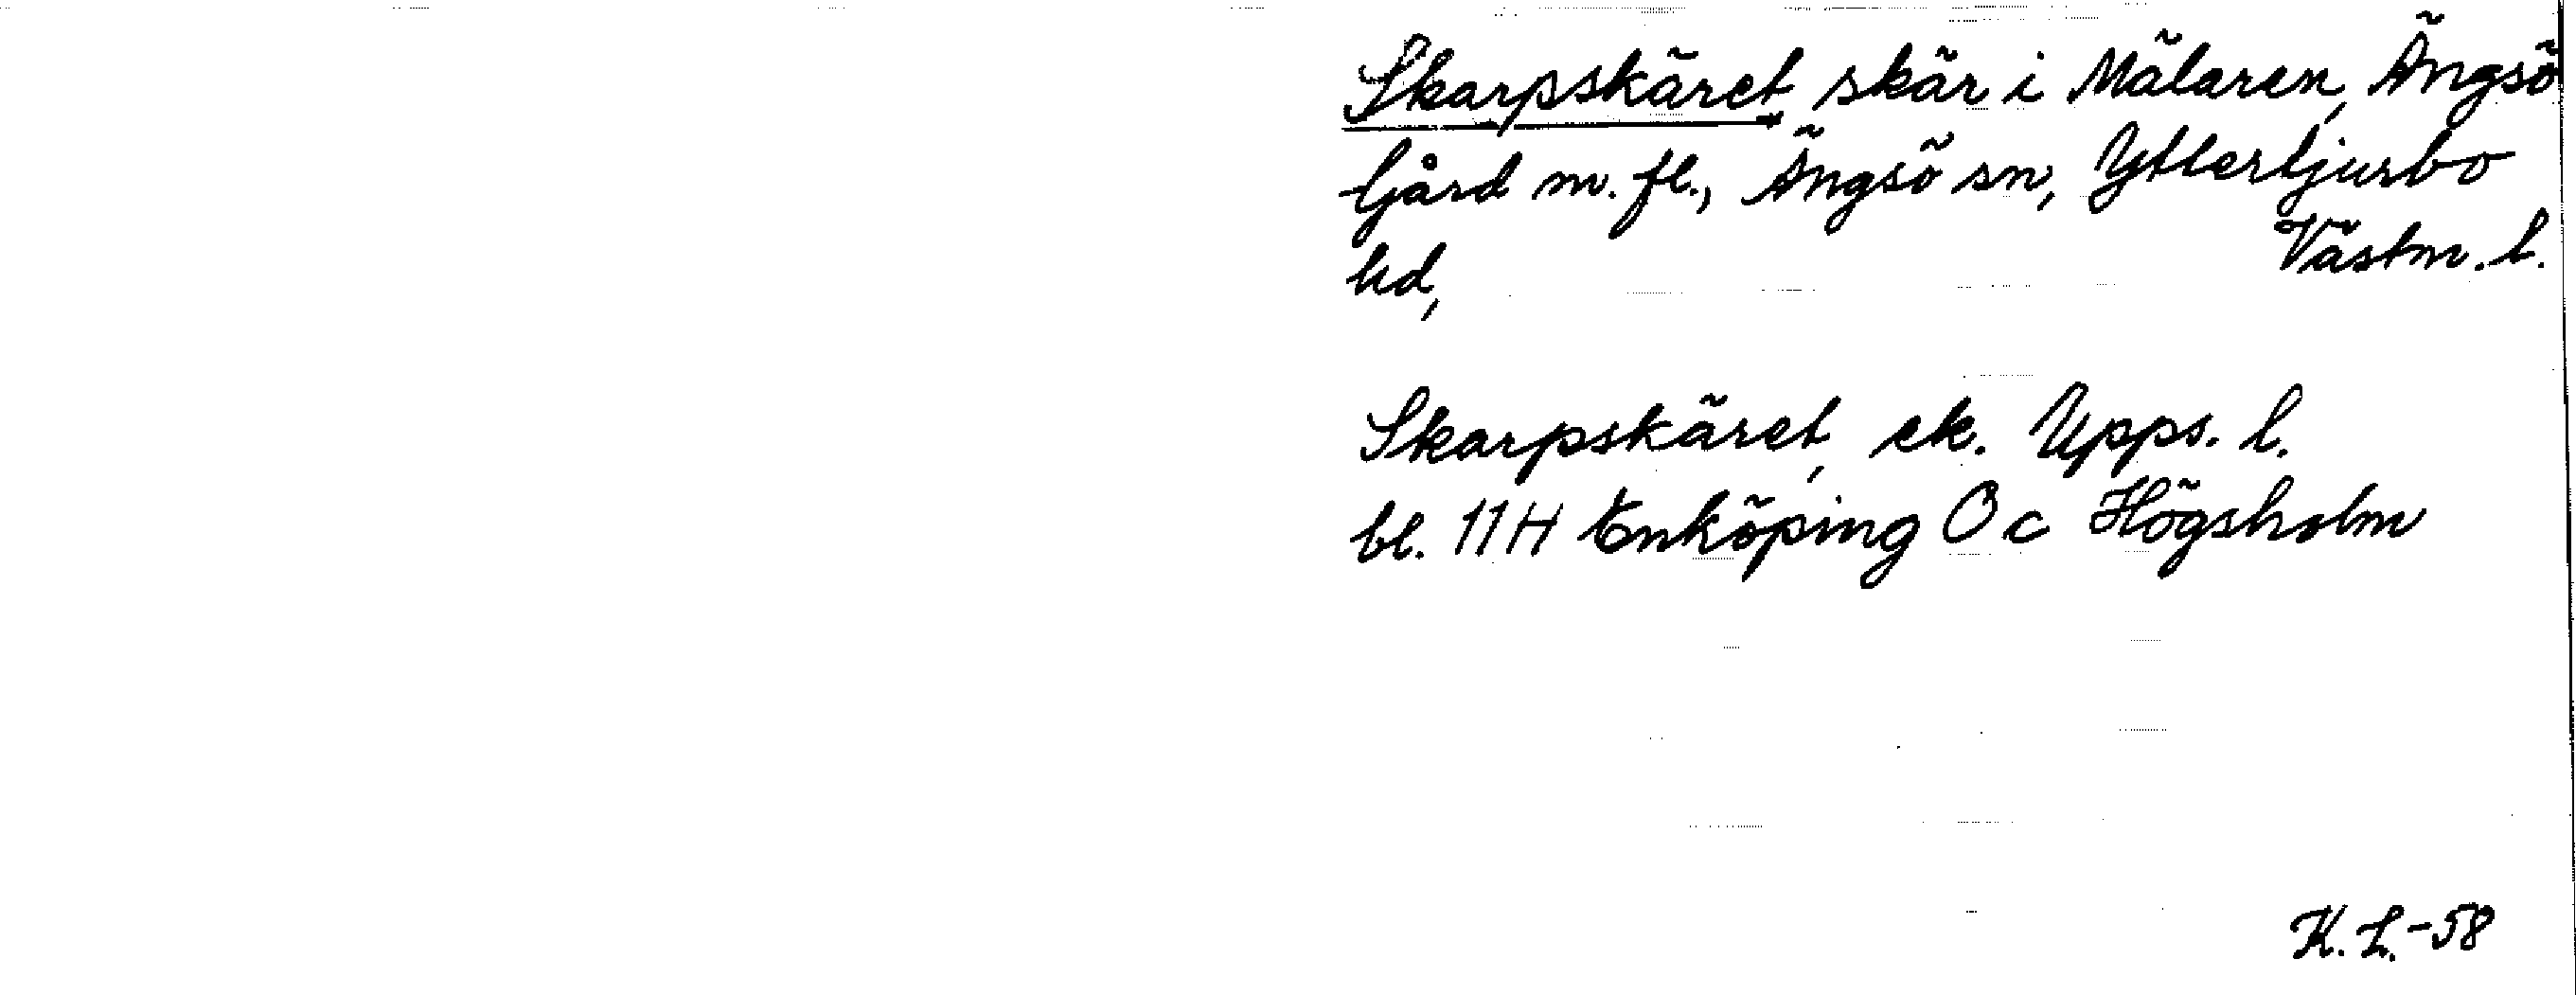 Skarpskäret, skär i Mälaren, Ängsö
Gård m. fl., Ängsö sn, Yttertjurbo
hd, Västm. l.
Skarpskäret, ek. Upps. l.
bl. 11H Enköping Oc Högsholm
K. L. -58